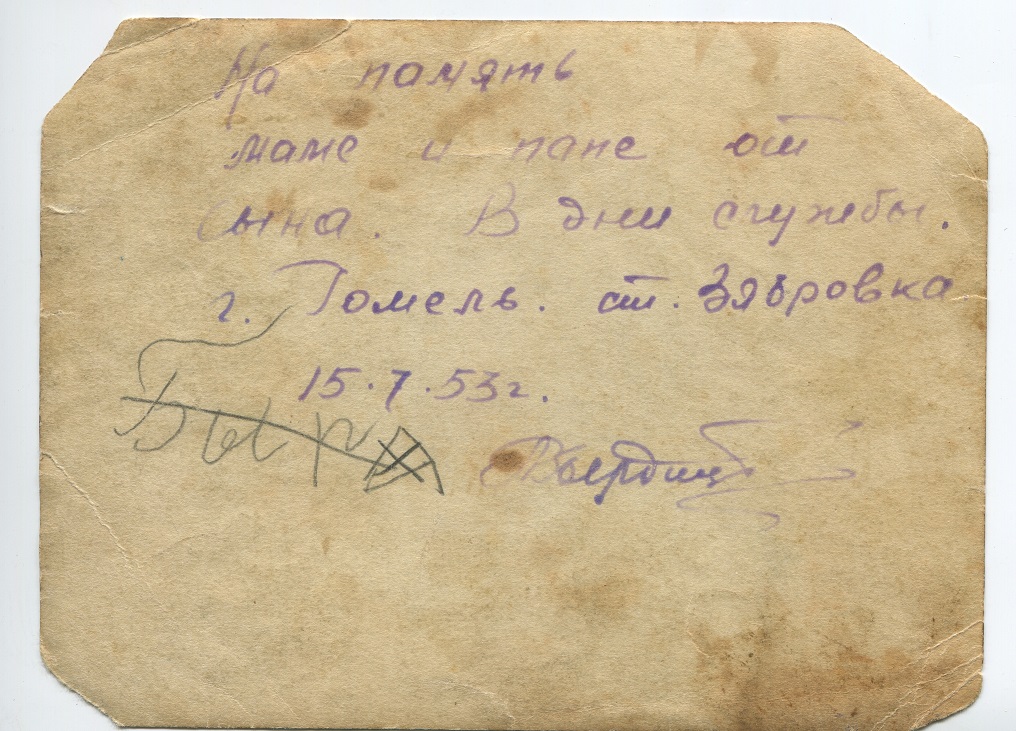 На память
маме и папе от
сына. В дни службы.
г. Гомель. ст. Зябровка
15.7.53г.